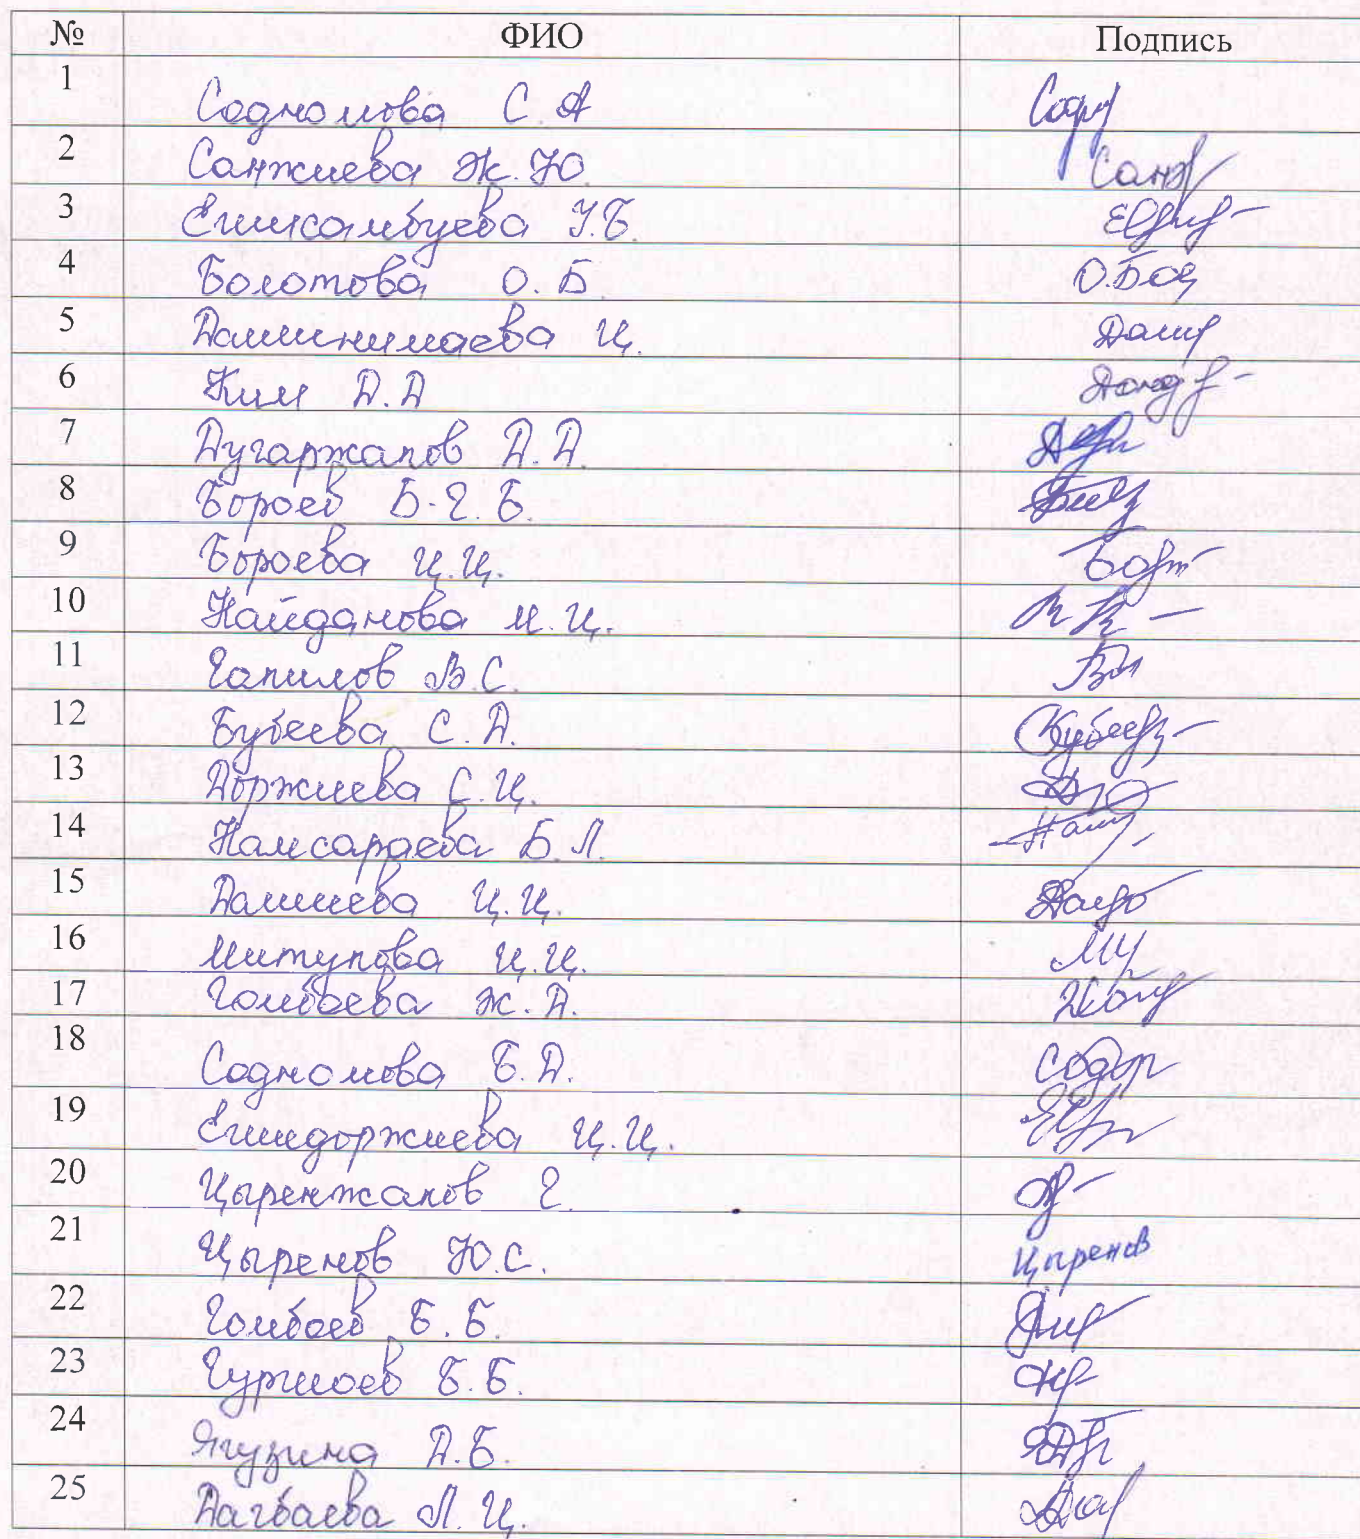 № ФИО Подпись
1 Содномова С.А
2 Санжиева Ж.Ю. Санж
3 Ешисамбуева У.Б.
4 Болотова О.Б. О.Бол
5 Дашинимаева Ц. Даши
6 Ким Д.Д
7 Дугаржапов Д.Д.
8 Бороев Б-Г.Б.
9 Бороева Ц.Ц.
10 Найданова М.Ц.
11 Гапилов В.С.
12 Бубеева С.Д.
13 Доржиева С.Ц.
14 Намсараева Б.Л.
15 Дашиева Ц.Ц.
16 Митупова Ц.Ц. МЦ
17 Гомбоева Ж.Д.
18 Содномова Б.Д.
19 Ешидоржиева Ц.Ц.
20 Цыренжапов Г.
21 Цыренов Ю.С. Цыренов
22 Гомбоев Б.Б.
23 Б.Б.
24 Ягузина Д.Б.
25 Дагбаева Л.Ц.